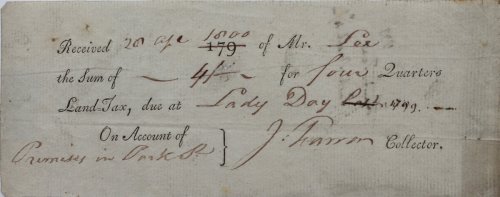 Received 28 Apl 1800 179 of Mr. Lee
the Sum of 4/ for four Quarters
Land-Tax, due at Lady Day last 1799.
On Account of
Premises in Park St J: Farron Collector.